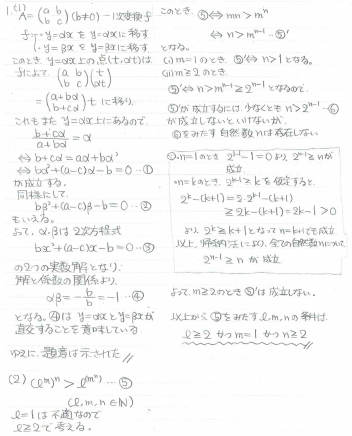 1.(1)
A=(a b
b c)(b≠0) 一次変換f
f…・y=αxをy=αxに移す
・y=βxをy=βxに移す
このとき、y=αx上の点(t,αt)は
fによって、(a b
b c)(t
αt)
=(a+bα
b+cα)t に移り、
これもまたy=αx上にあるので、
b+cα/a+bα=α
⇔ b+cα=aα+bα²
⇔ bα²+(a-c)α-b=0 …①
が成立する。
同様にして
bβ²+(a-c)β-b=0 …②
もいえる。
よって、α,βは2次方程式
bx²+(a-c)x-b=0 …③
の2つの実数解となり、
解と係数の関係より、
αβ=-b/b=-1 …④
となる。④はy=αxとy=βxが
直交することを意味している
ゆえに、題意は示された//
(2) (ℓᵐ)ⁿ>ℓ^(mⁿ) …⑤
(ℓ,m,n∈N)
ℓ=1は不適なので
ℓ≧2で考える。
このとき、⑤⇔mn>mⁿ
⇔n>mⁿ⁻¹ …⑤'
となる。
(i)m=1のとき、⑤'⇔n>1となる。
(ii)m≧2のとき
⑤'⇔n>mⁿ⁻¹≧2ⁿ⁻¹となるので、
⑤'が成立するには、少なくともn>2ⁿ⁻¹…⑥
が成立しないといけないが、
⑥をみたす自然数nは存在しない
n=1のとき 2¹⁻¹-1=0より、2ⁿ⁻¹≧nが
成立
・n=kのとき、2ᵏ⁻¹≧kを仮定すると、
2ᵏ-(k+1)=2・2ᵏ⁻¹-(k+1)
≧2k-(k+1)=2k-1>0
より、2ᵏ≧k+1となってn=k+1でも成立
以上、帰納的法により、全ての自然数nについて、
2ⁿ⁻¹≧n が成立
よって、m≧2のとき⑤'は成立しない。
以上から⑤をみたすℓ,m,nの条件は、
ℓ≧2かつm=1かつn≧2